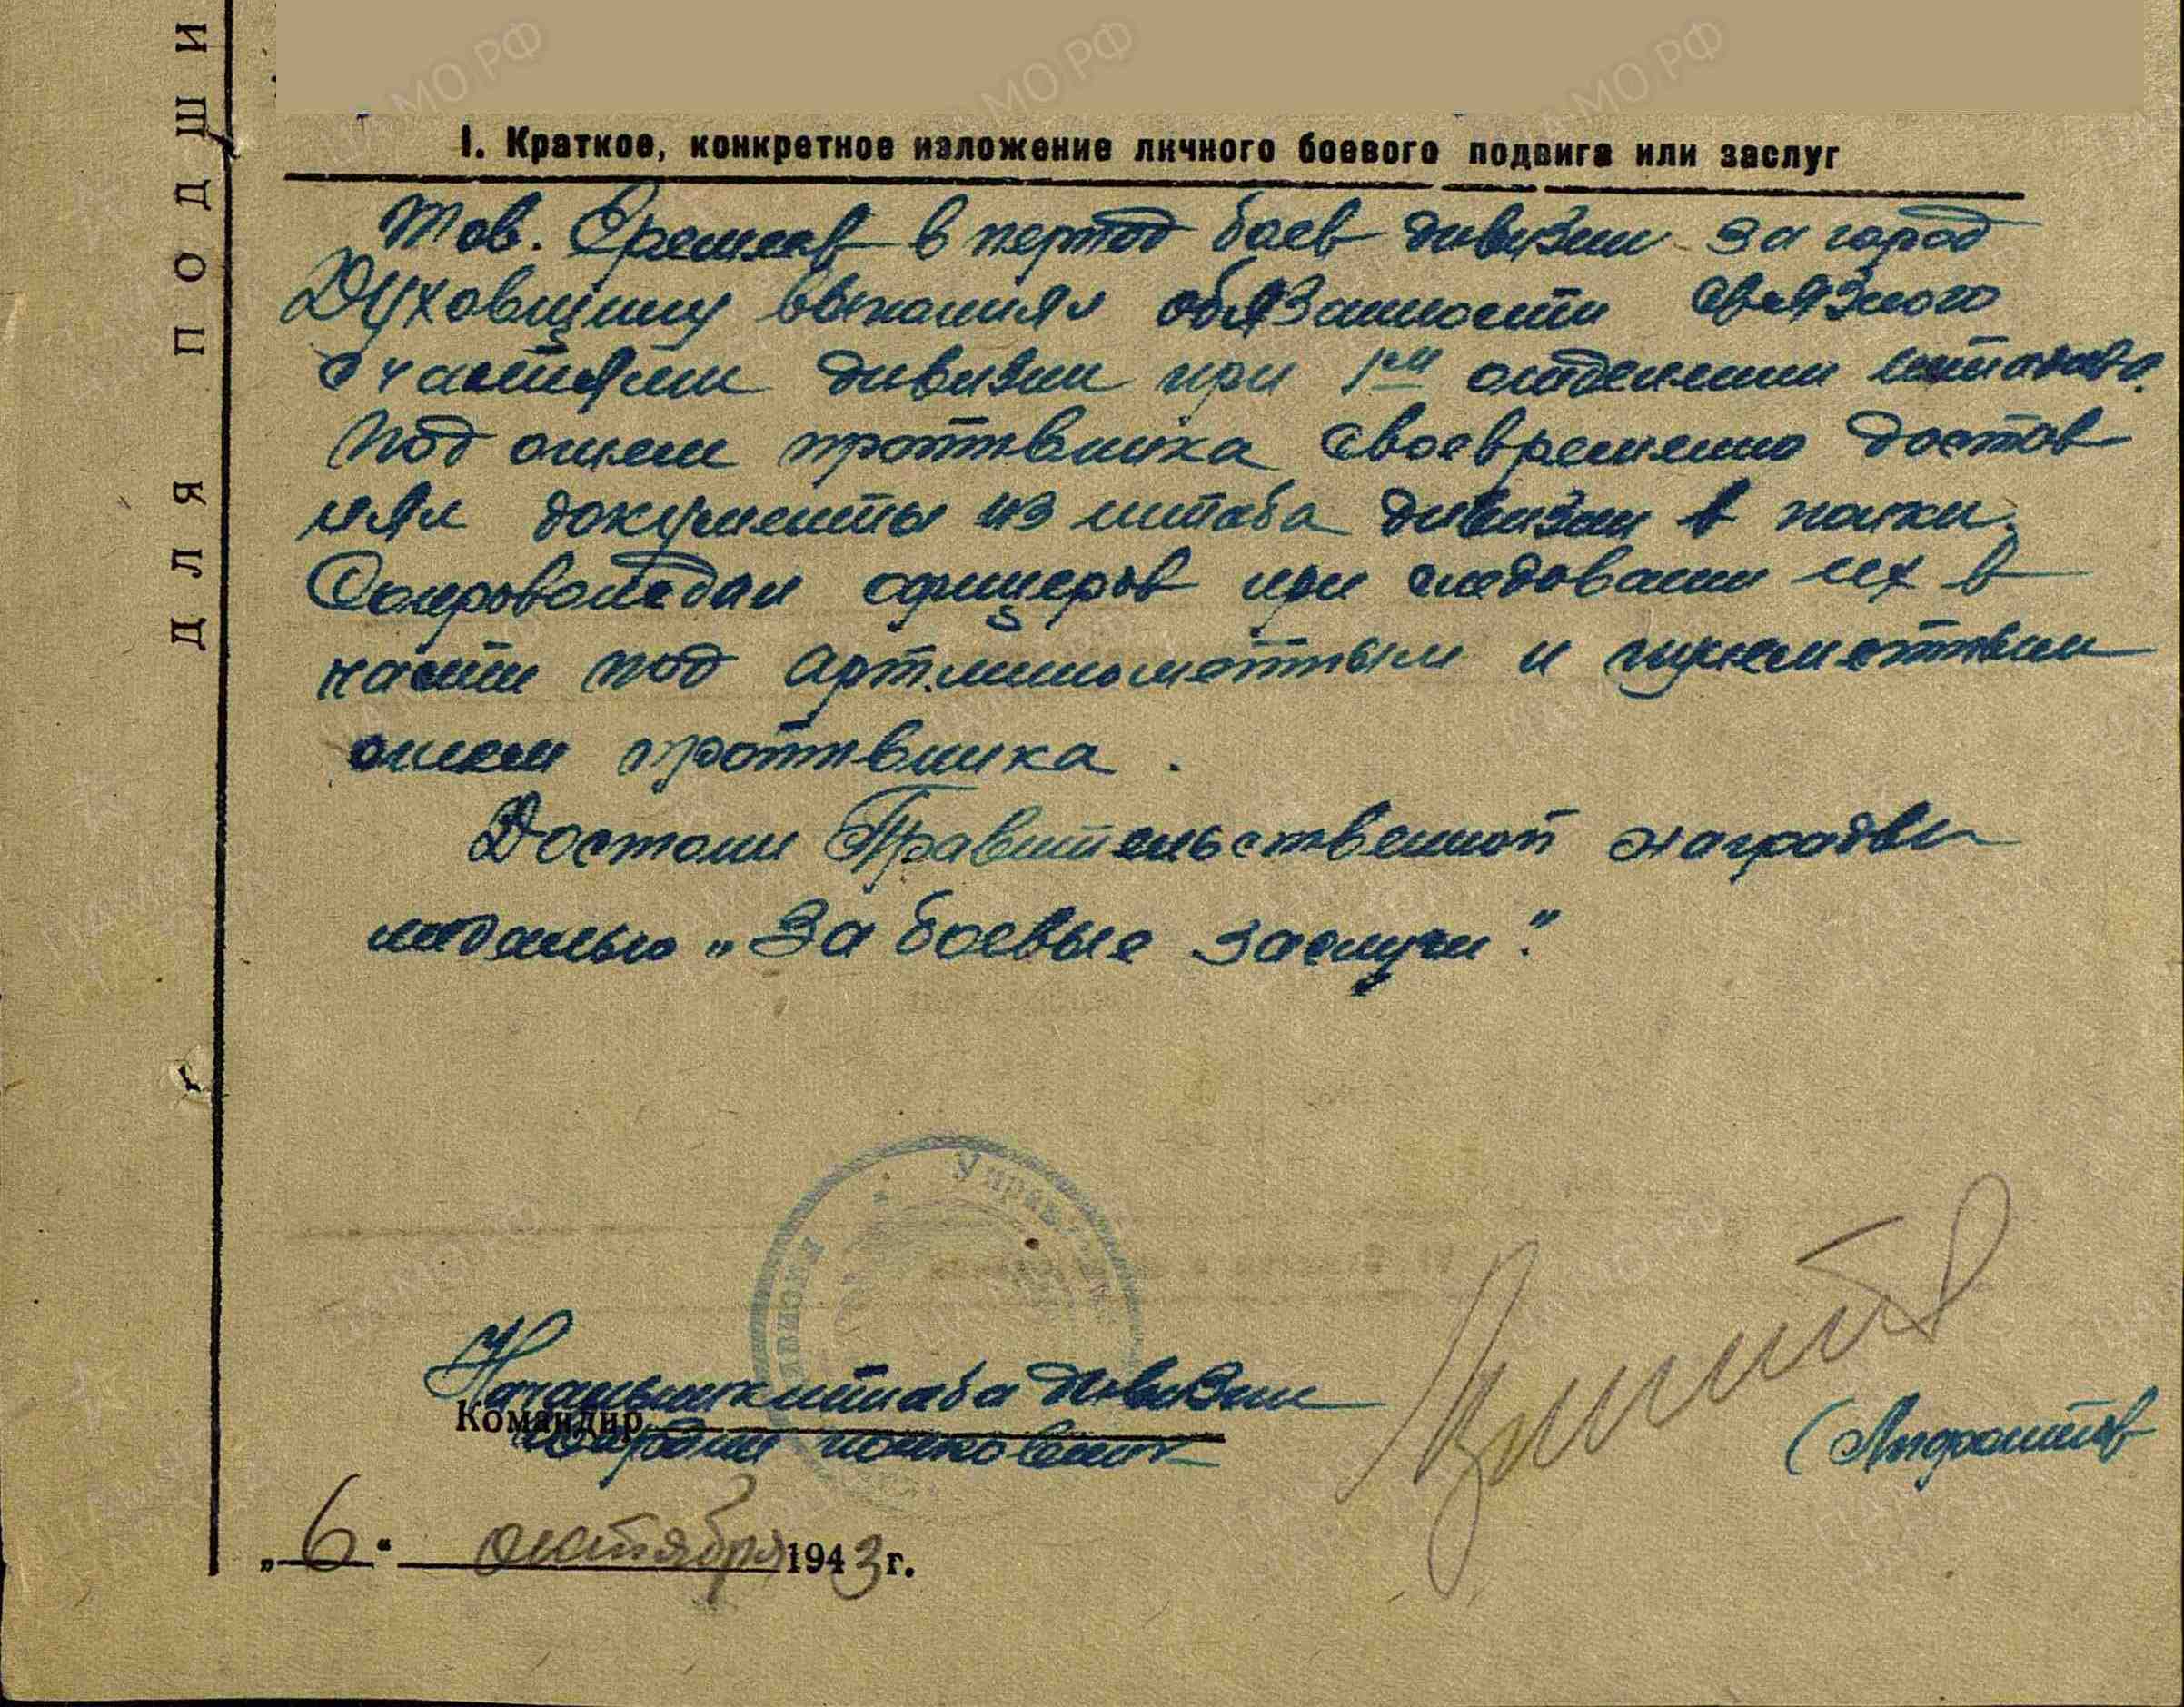 ДЛЯ ПОДШИ
I. Краткое, конкретное изложение личного боевого подвига или заслуг
Тов. в период боев дивизии за город
Духовщину выполнял обязанности связного
с частями дивизии при 1ᵐ отделении штадива.
Под огнем противника своевременно достав
лял документы из штаба дивизии в полки.
Сопровождал офицеров при следовании их в
части под арт.минометным и пулеметным
огнем противника.
Достоин Правительственной награды
медалью „За боевые заслуги".
Управ
Начальник штаба дивизии
Командир
гвардии полковник
„6" октября 1943 г.